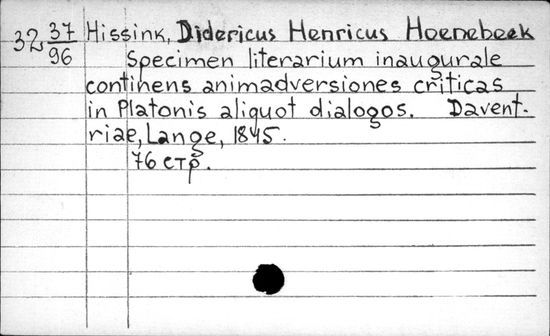 32 37/96 Hissink, Didericus Henricus Hoenebeek
Specimen literarium inaugurale
continens animadversiones criticas
in Platonis aliquot dialogos. Davent-
riae, Lange, 1845.
76 стр.